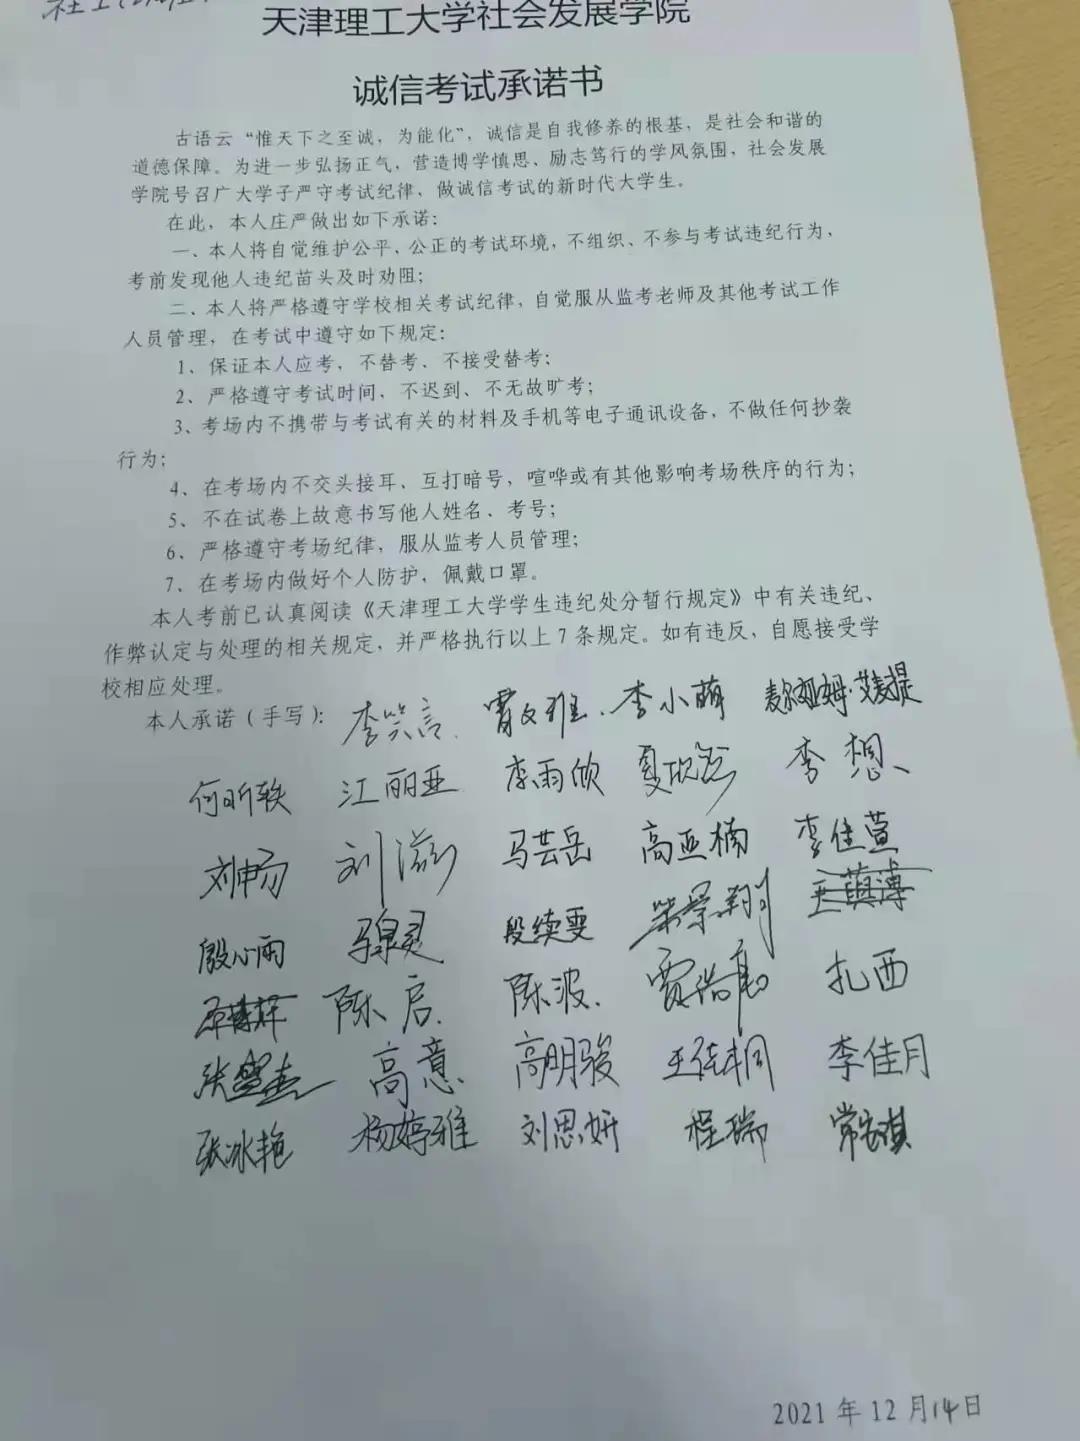 天津理工大学社会发展学院
诚信考试承诺书
古语云“惟天下之至诚，为能化”，诚信是自我修养的根基，是社会和谐的
道德保障。为进一步弘扬正气，营造博学慎思、励志笃行的学风氛围，社会发展
学院号召广大学子严守考试纪律，做诚信考试的新时代大学生。
在此，本人庄严做出如下承诺：
一、本人将自觉维护公平、公正的考试环境，不组织、不参与考试违纪行为，
考前发现他人违纪苗头及时劝阻；
二、本人将严格遵守学校相关考试纪律，自觉服从监考老师及其他考试工作
人员管理，在考试中遵守如下规定：
1、保证本人应考，不替考、不接受替考；
2、严格遵守考试时间，不迟到、不无故旷考；
3、考场内不携带与考试有关的材料及手机等电子通讯设备，不做任何抄袭
行为；
4、在考场内不交头接耳、互打暗号，喧哗或有其他影响考场秩序的行为；
5、不在试卷上故意书写他人姓名、考号；
6、严格遵守考场纪律，服从监考人员管理；
7、在考场内做好个人防护，佩戴口罩。
本人考前已认真阅读《天津理工大学学生违纪处分暂行规定》中有关违纪、
作弊认定与处理的相关规定，并严格执行以上7条规定。如有违反，自愿接受学
校相应处理。
本人承诺（手写）： 李笑言 李小萌 麦尔姬姆·艾麦提
何昕轶 江丽亚 李雨欣 李想
刘畅 刘滋 马芸岳 高亚楠 李佳萱
殷心雨 段续雯
陈启 陈波 扎西
高意 高明骏 王佳桐 李佳月
张冰艳 杨婷雅 刘思妍 程瑞
2021 年 12 月 14 日